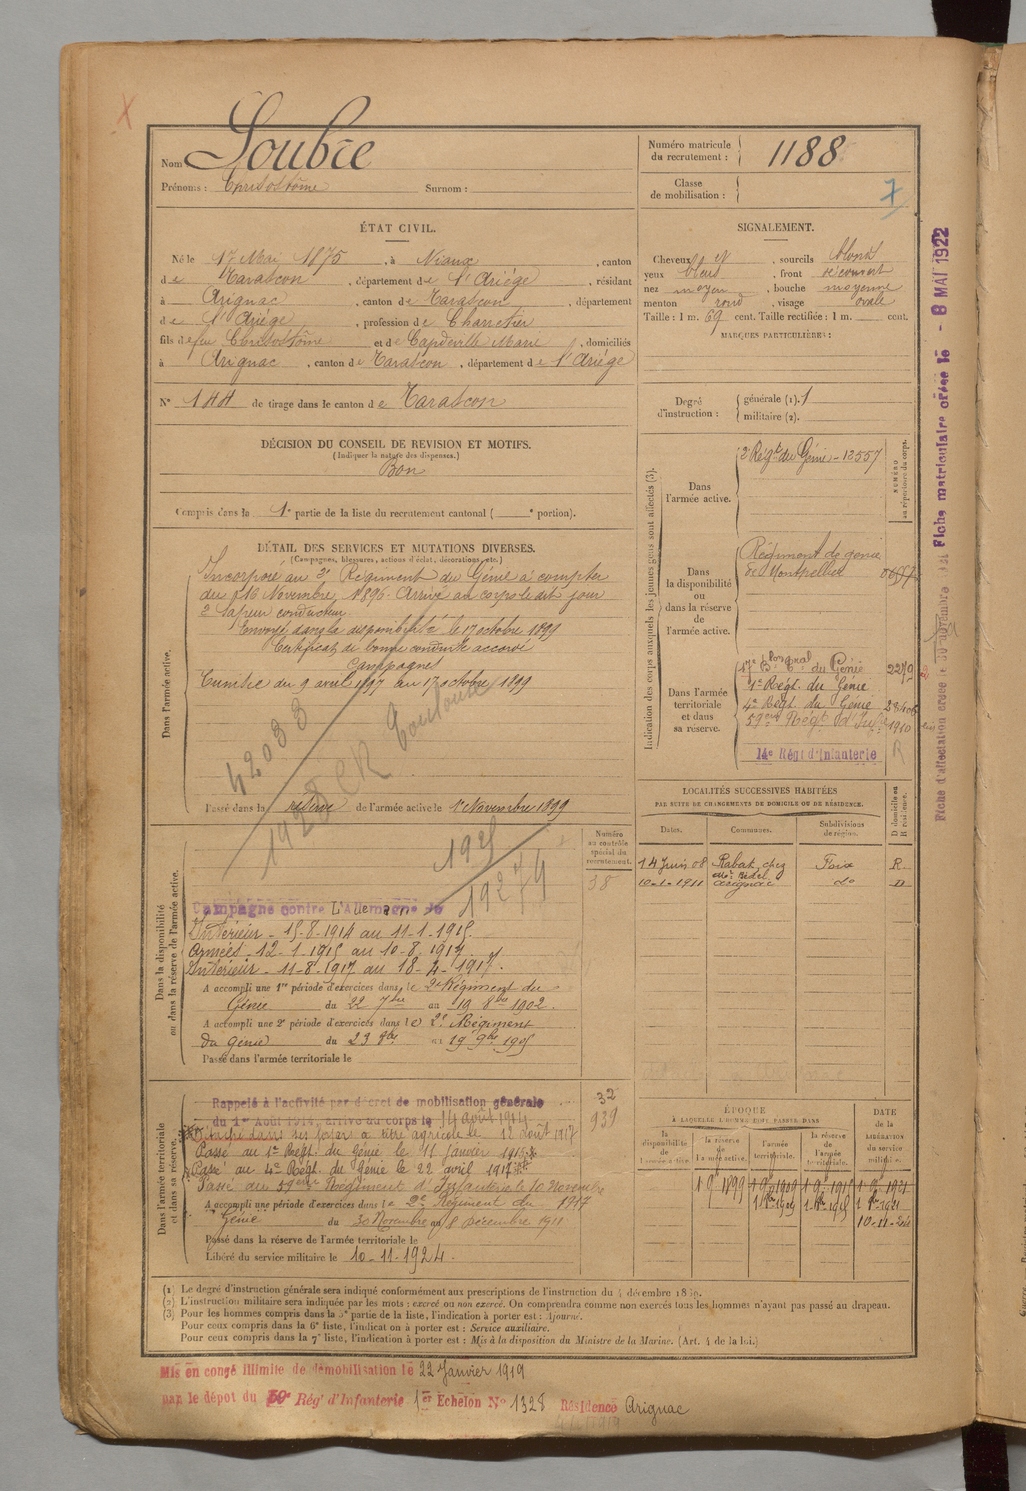 Nom Soubie
Prénoms : Chrisostôme Surnom :
Numéro matricule du recrutement : 1188
Classe de mobilisation :
7
ÉTAT CIVIL.
Né le 17 Mai 1875, à Niaux, canton
de Tarascon, département de l'Ariège, résidant
à Arignac, canton de Tarascon, département
de l'Ariège, profession de Charretier
fils de feu Chrisostôme et de Capdeville Marie, domiciliés
à Arignac, canton de Tarascon, département de l'Ariège
N° 144 de tirage dans le canton de Tarascon
SIGNALEMENT.
Cheveux et sourcils blonds
yeux bleus, front découvert
nez moyen, bouche moyenne
menton rond, visage ovale
Taille : 1 m. 69 cent. Taille rectifiée : 1 m. cent.
MARQUES PARTICULIÈRES :
Degré d'instruction : générale (1). 1
militaire (2).
DÉCISION DU CONSEIL DE REVISION ET MOTIFS.
(Indiquer la nature des dispenses.)
Bon
Compris dans la 1e partie de la liste du recrutement cantonal ( e portion).
DÉTAIL DES SERVICES ET MUTATIONS DIVERSES.
(Campagnes, blessures, actions d'éclat, décorations, etc.)
Dans l'armée active.
Incorporé au 2e Régiment du Génie à compter
du 16 Novembre 1896. Arrivé au corps le dit jour
2e Sapeur conducteur
Envoyé dans la disponibilité le 17 octobre 1899
Certificat de bonne conduite accordé
Campagnes
Tunisie du 9 avril 1897 au 17 octobre 1899
42033
Toulouse
Passé dans la réserve de l'armée active le 1er Novembre 1899
Indication des corps auxquels les jeunes gens sont affectés (3).
NUMÉRO au répertoire du corps.
Dans l'armée active.
2e Régt du Génie - 12557
Dans la disponibilité ou dans la réserve de l'armée active.
Régiment de génie
de Montpellier
Dans l'armée territoriale et dans sa réserve.
17e Bon Cral du Génie 2279
1er Régt. du Génie
4e Régt. du Génie
59ème Régt d'Infie 1910
14e Régt d'Infanterie R
Fiche matriculaire créée le - 8 MAI 1922
LOCALITÉS SUCCESSIVES HABITÉES
PAR SUITE DE CHANGEMENTS DE DOMICILE OU DE RÉSIDENCE.
Dates. Communes. Subdivisions de région. D domicile ou R résidence.
14 Juin 08 Rabat, chez Mr Bédel Foix R
10-1-1911 Arignac do D
Dans la disponibilité ou dans la réserve de l'armée active.
Numéro au contrôle spécial du recrutement.
38
Campagne contre L'Allemagne
Intérieur - 15-8-1914 au 11-1-1915
Armées - 12-1-1915 au 10-8-1917
Intérieur - 11-8-1917 au
A accompli une 1re période d'exercices dans le 2e Régiment du
Génie du 22 7bre au 19 8bre 1902.
A accompli une 2e période d'exercices dans le 2e Régiment
du génie du 23 8bre au 19 9bre 1905
Passé dans l'armée territoriale le
Dans l'armée territoriale et dans sa réserve.
32
939
Rappelé à l'activité par décret de mobilisation générale
du 1er Août 1914, arrivé au corps le 14 août 1914
Détaché dans ses foyers à titre agricole le 12 Août 1917
Passé au 1er Régt. du Génie le 11 janvier 1915
Passé au 4e Régt. du Génie le 22 avril 1917
Passé au 59ème Régiment d'Infanterie le 10 Novembre
1917
A accompli une période d'exercices dans le 2e Régiment du
Génie du 30 Novembre au 8 Décembre 1911
Passé dans la réserve de l'armée territoriale le
Libéré du service militaire le 10-11-1924.
ÉPOQUE
À LAQUELLE L'HOMME DOIT PASSER DANS
la disponibilité de l'armée active. la réserve de l'armée active. l'armée territoriale. la réserve de l'armée territoriale.
DATE de la LIBÉRATION du service militaire.
1 9bre 1899 1 9bre 1909 1 9bre 1915 1 9bre 1921
10-11-24
(1) Le degré d'instruction générale sera indiqué conformément aux prescriptions de l'instruction du 4 décembre 1889.
(2) L'instruction militaire sera indiquée par les mots : exercé ou non exercé. On comprendra comme non exercés tous les hommes n'ayant pas passé au drapeau.
(3) Pour les hommes compris dans la 5e partie de la liste, l'indication à porter est : Ajourné.
Pour ceux compris dans la 6e liste, l'indication à porter est : Service auxiliaire.
Pour ceux compris dans la 7e liste, l'indication à porter est : Mis à la disposition du Ministre de la Marine. (Art. 4 de la loi.)
Mis en congé illimité de démobilisation le 22 Janvier 1919
par le dépot du 59e Rég' d'Infanterie 1er Echelon N° 1328 Résidence Arignac